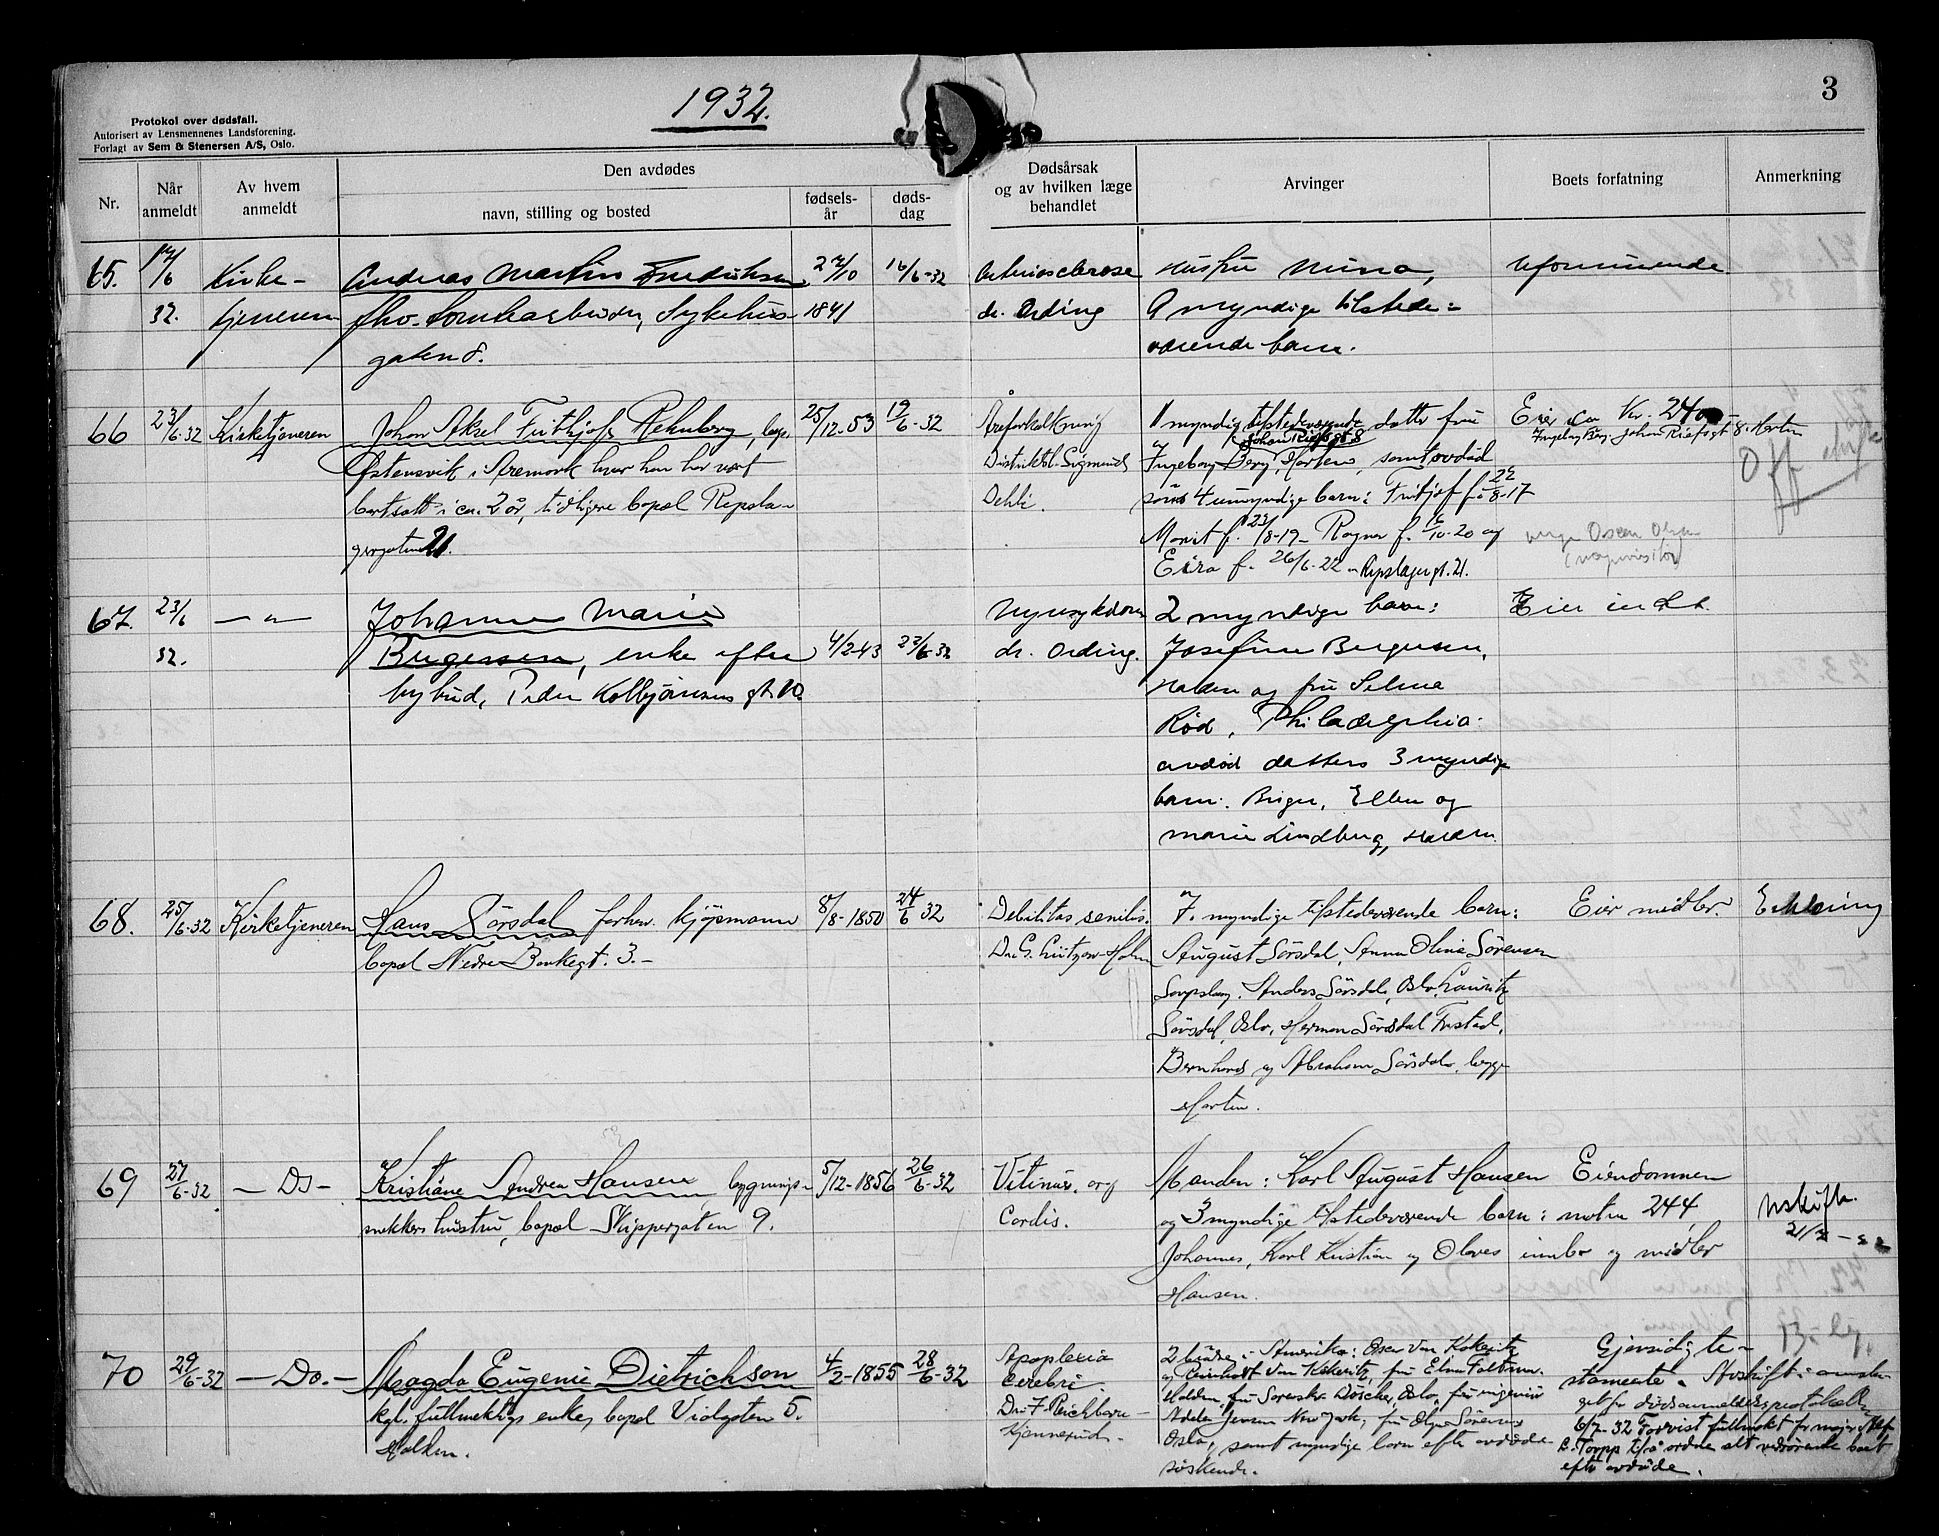 1932.
3
Protokol over dødsfall.
Autorisert av Lensmennenes Landsforening.
Forlagt av Sem & Stenersen A/S, Oslo.
Nr.
Når anmeldt
Av hvem anmeldt
Den avdødes
navn, stilling og bosted
fødsels-år
døds-dag
Dødsårsak og av hvilken læge behandlet
Arvinger
Boets forfatning
Anmerkning
65.
17/6 32.
Kirke-
tjeneren
Andreas Martin Fredriksen,
fhv. tomtearbeider, Sykehus-
gaten 8.
27/10 1841
16/6-32
Arteriosclerose
dr. Ording
Hustru Mina,
9 myndige tilstede-
værende barn.
Uformuende
66
23/6-32
Kirketjeneren
Johan Aksel Frithjof Rehnberg, bop.
Østensvik i Aremark hvor han har vært
bortsatt i ca. 2 år, tidligere bopæl Repsla-
gergaten 21.
25/12-53
19/6-32
Åreforkalkning
Distriktsl. Sigmund
Dehli.
1 myndig tilstedeværende datter fru
Johan Riefsgt 8
Ingeborg Berg, Horten, samt avdød
søns 4 umyndige barn: Fritjof f. 22/8-17
Marit f. 23/8-19 - Ragnar f. 16/10-20 og
Eira f. 26/6-22 - Repslagergt. 21.
Eier ca Kr. 2400-
Ingeborg Berg. Johan Riefsgt 8. Horten
verge Oscar Olsen
Off
67.
23/6 32.
— " —
Johanne Marie
Birgersen, enke efter
bybud, Peder Kolbjørnsens gt. 10.
4/2-43
23/6-32
Nyresykdom
dr. Ording.
2 myndige barn:
Josefine Bergersen,
Halden og fru Selma
Rød, Philadelphia.
avdød datters 3 myndige
barn: Birger, Ellen og
Marie Lindberg, Halden.
Eier intet.
68.
25/6-32
Kirketjeneren
Hans Sørsdal forhv. kjøpmann
bopæl Nedre Bankegt. 3.-
8/8-1850
24/6 32
Debilitas senilis.
Dr. G. Lützow-Holm
7. myndige tilstedeværende barn:
August Sørsdal, Anna Olivia Sørensen
Sarpsborg. Anders Sørsdal, Oslo, Lauritz
Sørsdal, Oslo, Herman Sørsdal Tistedal,
Bernhard og Abraham Sørsdal, begge
Horten.
Eier midler.
Erklæring
69
27/6-32
— Do —
Kristiane Andrea Hansen bygnings-
snekkers hustru, bopæl Skippergaten 9.
5/12-1856
26/6-32
Vitium. org
Cordis.
Manden: Karl August Hansen
og 3 myndige tilstedeværende barn:
Johannes, Karl Kristian og Olaves
Hansen.
Eiendommen
matr 244
innbo og midler
Uskifte.
70
29/6-32
— Do. —
Magda Eugenie Dietrichson
kgl. fullmektigs enke, bopæl Vidgaten 5.
Halden.
4/2-1855
28/6-32
Apoplexia
cerebri
Dr. F. Reichborn-
Kjennerud.-
2 brødre i Amerika: Oscar Van Koteritz
og Reinholdt Van Kotteritz, fru
Halden, fru Oslo, fru ingeniør
Adele Jensen New York, fru Olga Sørensen
Oslo, samt myndige barn efter avdøde
søskende.
Gjensidig te-
stamente. Avskrift i
get for dødsanmeldelsesprotokoll
6/7-32 Forvist fullmakt for major
C. Torpp til å ordne alt vedrørende boet
efter avdøde.